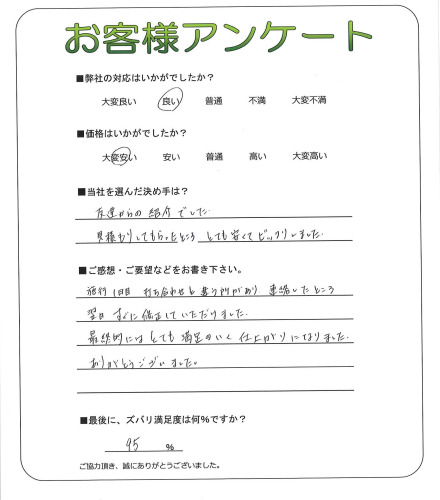 お客様アンケート
■弊社の対応はいかがでしたか？
大変良い 良い 普通 不満 大変不満
■価格はいかがでしたか？
大変安い 安い 普通 高い 大変高い
■当社を選んだ決め手は？
友達からの紹介でした。
見積もりしてもらったところ とても安くてビックリしました。
■ご感想・ご要望などをお書き下さい。
施行1日目 打ち合わせと違う所があり 連絡したところ
翌日 すぐに修正していただけました。
最終的にはとても満足のいく仕上がりになりました。
ありがとうございました。
■最後に、ズバリ満足度は何％ですか？
95 ％
ご協力頂き、誠にありがとうございました。